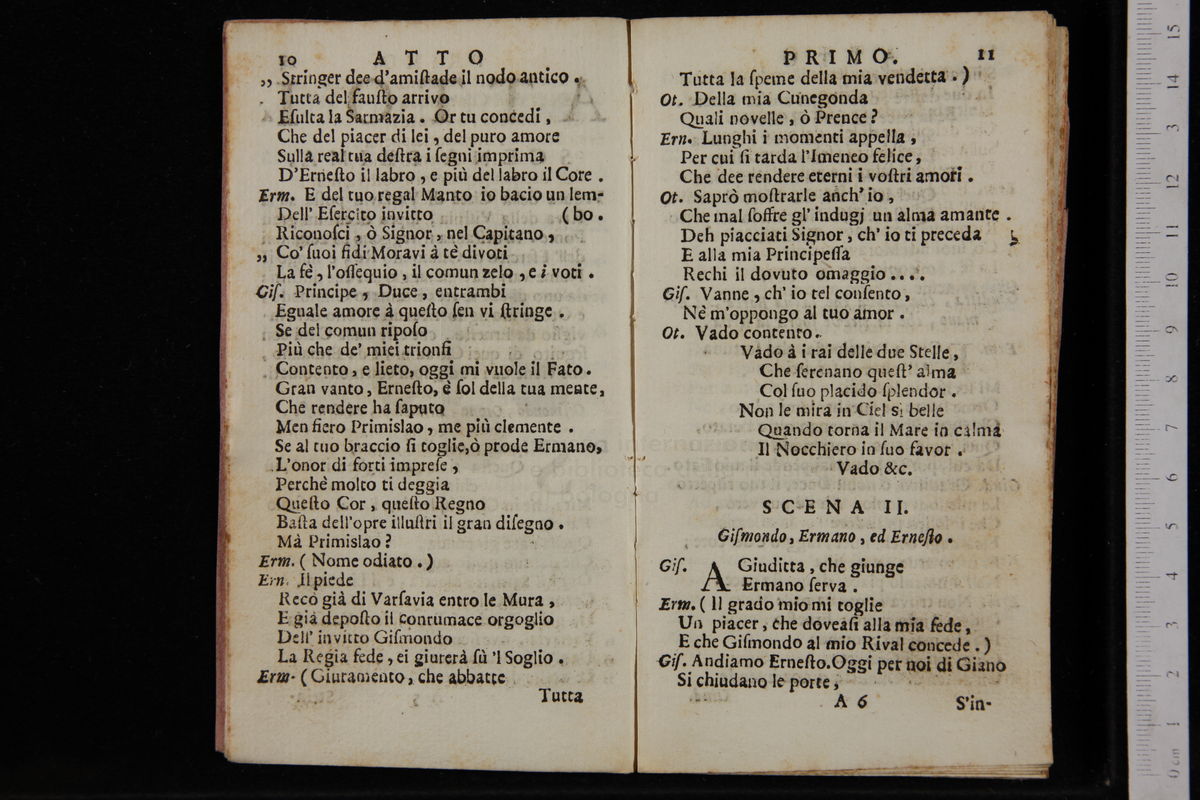 10 ATTO
„ Stringer dee d'amiſtade il nodo antico .
Tutta del fauſto arrivo
Eſulta la Sarmazia . Or tu concedi ,
Che del piacer di lei , del puro amore
Sulla real tua deſtra i ſegni imprima
D'Erneſto il labro , e più del labro il Core .
Erm. E del tuo regal Manto io bacio un lem-
Dell' Eſercito invitto (bo .
Riconoſci , ò Signor , nel Capitano ,
„ Co' ſuoi fidi Moravi à tè divoti
La fè , l'oſſequio , il comun zelo , e i voti .
Giſ. Principe , Duce , entrambi
Eguale amore à queſto ſen vi ſtringe .
Se del comun ripoſo
Più che de' miei trionfi
Contento , e lieto, oggi mi vuole il Fato .
Gran vanto, Erneſto, è ſol della tua mente,
Che rendere ha ſaputo
Men fiero Primislao , me più clemente .
Se al tuo braccio ſi toglie, ò prode Ermano,
L'onor di forti impreſe ,
Perchè molto ti deggia
Queſto Cor , queſto Regno
Baſta dell'opre illuſtri il gran diſegno .
Mà Primislao ?
Erm. ( Nome odiato . )
Ern. Il piede
Recò già di Varſavia entro le Mura ,
E già depoſto il contumace orgoglio
Dell' invitto Giſmondo
La Regia fede , ei giurerà sù 'l Soglio .
Erm- ( Giuramento, che abbatte
Tutta
PRIMO. 11
Tutta la ſpeme della mia vendetta . )
Ot. Della mia Cunegonda
Quali novelle , ò Prence ?
Ern. Lunghi i momenti appella ,
Per cui ſi tarda l'Imeneo felice ,
Che dee rendere eterni i voſtri amori .
Ot. Saprò moſtrarle anch' io ,
Che mal ſoffre gl' indugj un alma amante .
Deh piacciati Signor , ch' io ti preceda
E alla mia Principeſſa
Rechi il dovuto omaggio ....
Giſ. Vanne , ch' io tel conſento ,
Nè m'oppongo al tuo amor .
Ot. Vado contento .
Vado à i rai delle due Stelle ,
Che ſerenano queſt' alma
Col ſuo placido ſplendor .
Non le mira in Ciel sì belle
Quando torna il Mare in calma
Il Nocchiero in ſuo favor .
Vado &c.
SCENA II.
Giſmondo, Ermano , ed Erneſto .
Giſ. A Giuditta , che giunge
Ermano ſerva .
Erm. ( Il grado mio mi toglie
Un piacer , che doveaſi alla mia fede ,
E che Giſmondo al mio Rival concede . )
Giſ. Andiamo Erneſto. Oggi per noi di Giano
Si chiudano le porte ,
A 6 S'in-